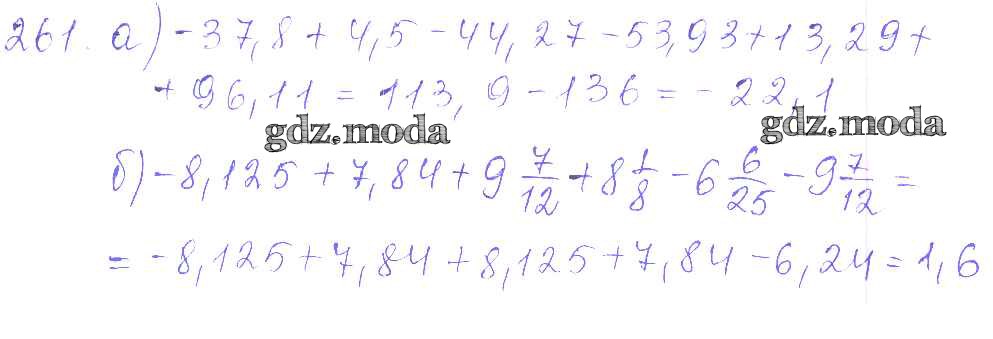 261. а) -37,8 + 4,5 - 44,27 - 53,93 + 13,29 +
+ 96,11 = 113,9 - 136 = - 22,1
gdz.moda gdz.moda
б) - 8,125 + 7,84 + 9 7/12 + 8 1/8 - 6 6/25 - 9 7/12 =
= - 8,125 + 7,84 + 8,125 + 7,84 - 6,24 = 1,6